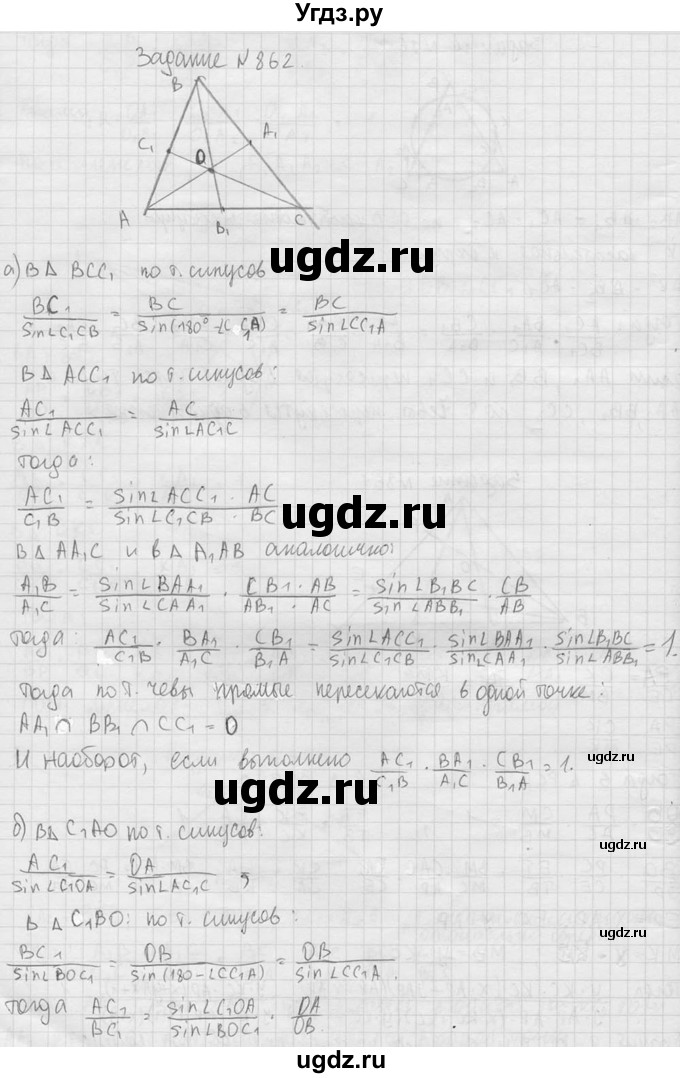 Угдз.ру
Задание №862
B
C₁
A₁
O
A
B₁
C
а) В Δ BCC₁ по т. синусов
BC₁/sin∠C₁CB = BC/sin(180°-∠C₁CA) = BC/sin∠CC₁A
ugdz.ru
В Δ ACC₁ по т. синусов:
AC₁/sin∠ACC₁ = AC/sin∠AC₁C
тогда:
AC₁/C₁B = sin∠ACC₁ · AC/sin∠C₁CB · BC
ugdz.ru
В Δ AA₁C и в Δ A₁AB аналогично:
A₁B/A₁C = sin∠BAA₁/sin∠CAA₁ · CB₁ · AB/AB₁ · AC = sin∠B₁BC/sin∠ABB₁ · CB/AB
тогда: AC₁/C₁B · BA₁/A₁C · CB₁/B₁A = sin∠ACC₁/sin∠C₁CB · sin∠BAA₁/sin∠CAA₁ · sin∠B₁BC/sin∠ABB₁ = 1.
тогда по т. Чевы прямые пересекаются в одной точке:
AA₁ ∩ BB₁ ∩ CC₁ = O
И наоборот, если выполнено AC₁/C₁B · BA₁/A₁C · CB₁/B₁A = 1.
ugdz.ru
ugdz.ru
б) В Δ C₁AO по т. синусов:
AC₁/sin∠C₁OA = OA/sin∠AC₁C ,
ugdz.ru
В Δ C₁BO: по т. синусов:
ugdz.ru
BC₁/sin∠BOC₁ = OB/sin(180-∠CC₁A) = OB/sin∠CC₁A.
тогда AC₁/BC₁ = sin∠C₁OA/sin∠BOC₁ · OA/OB.
ugdz.ru
ugdz.ru